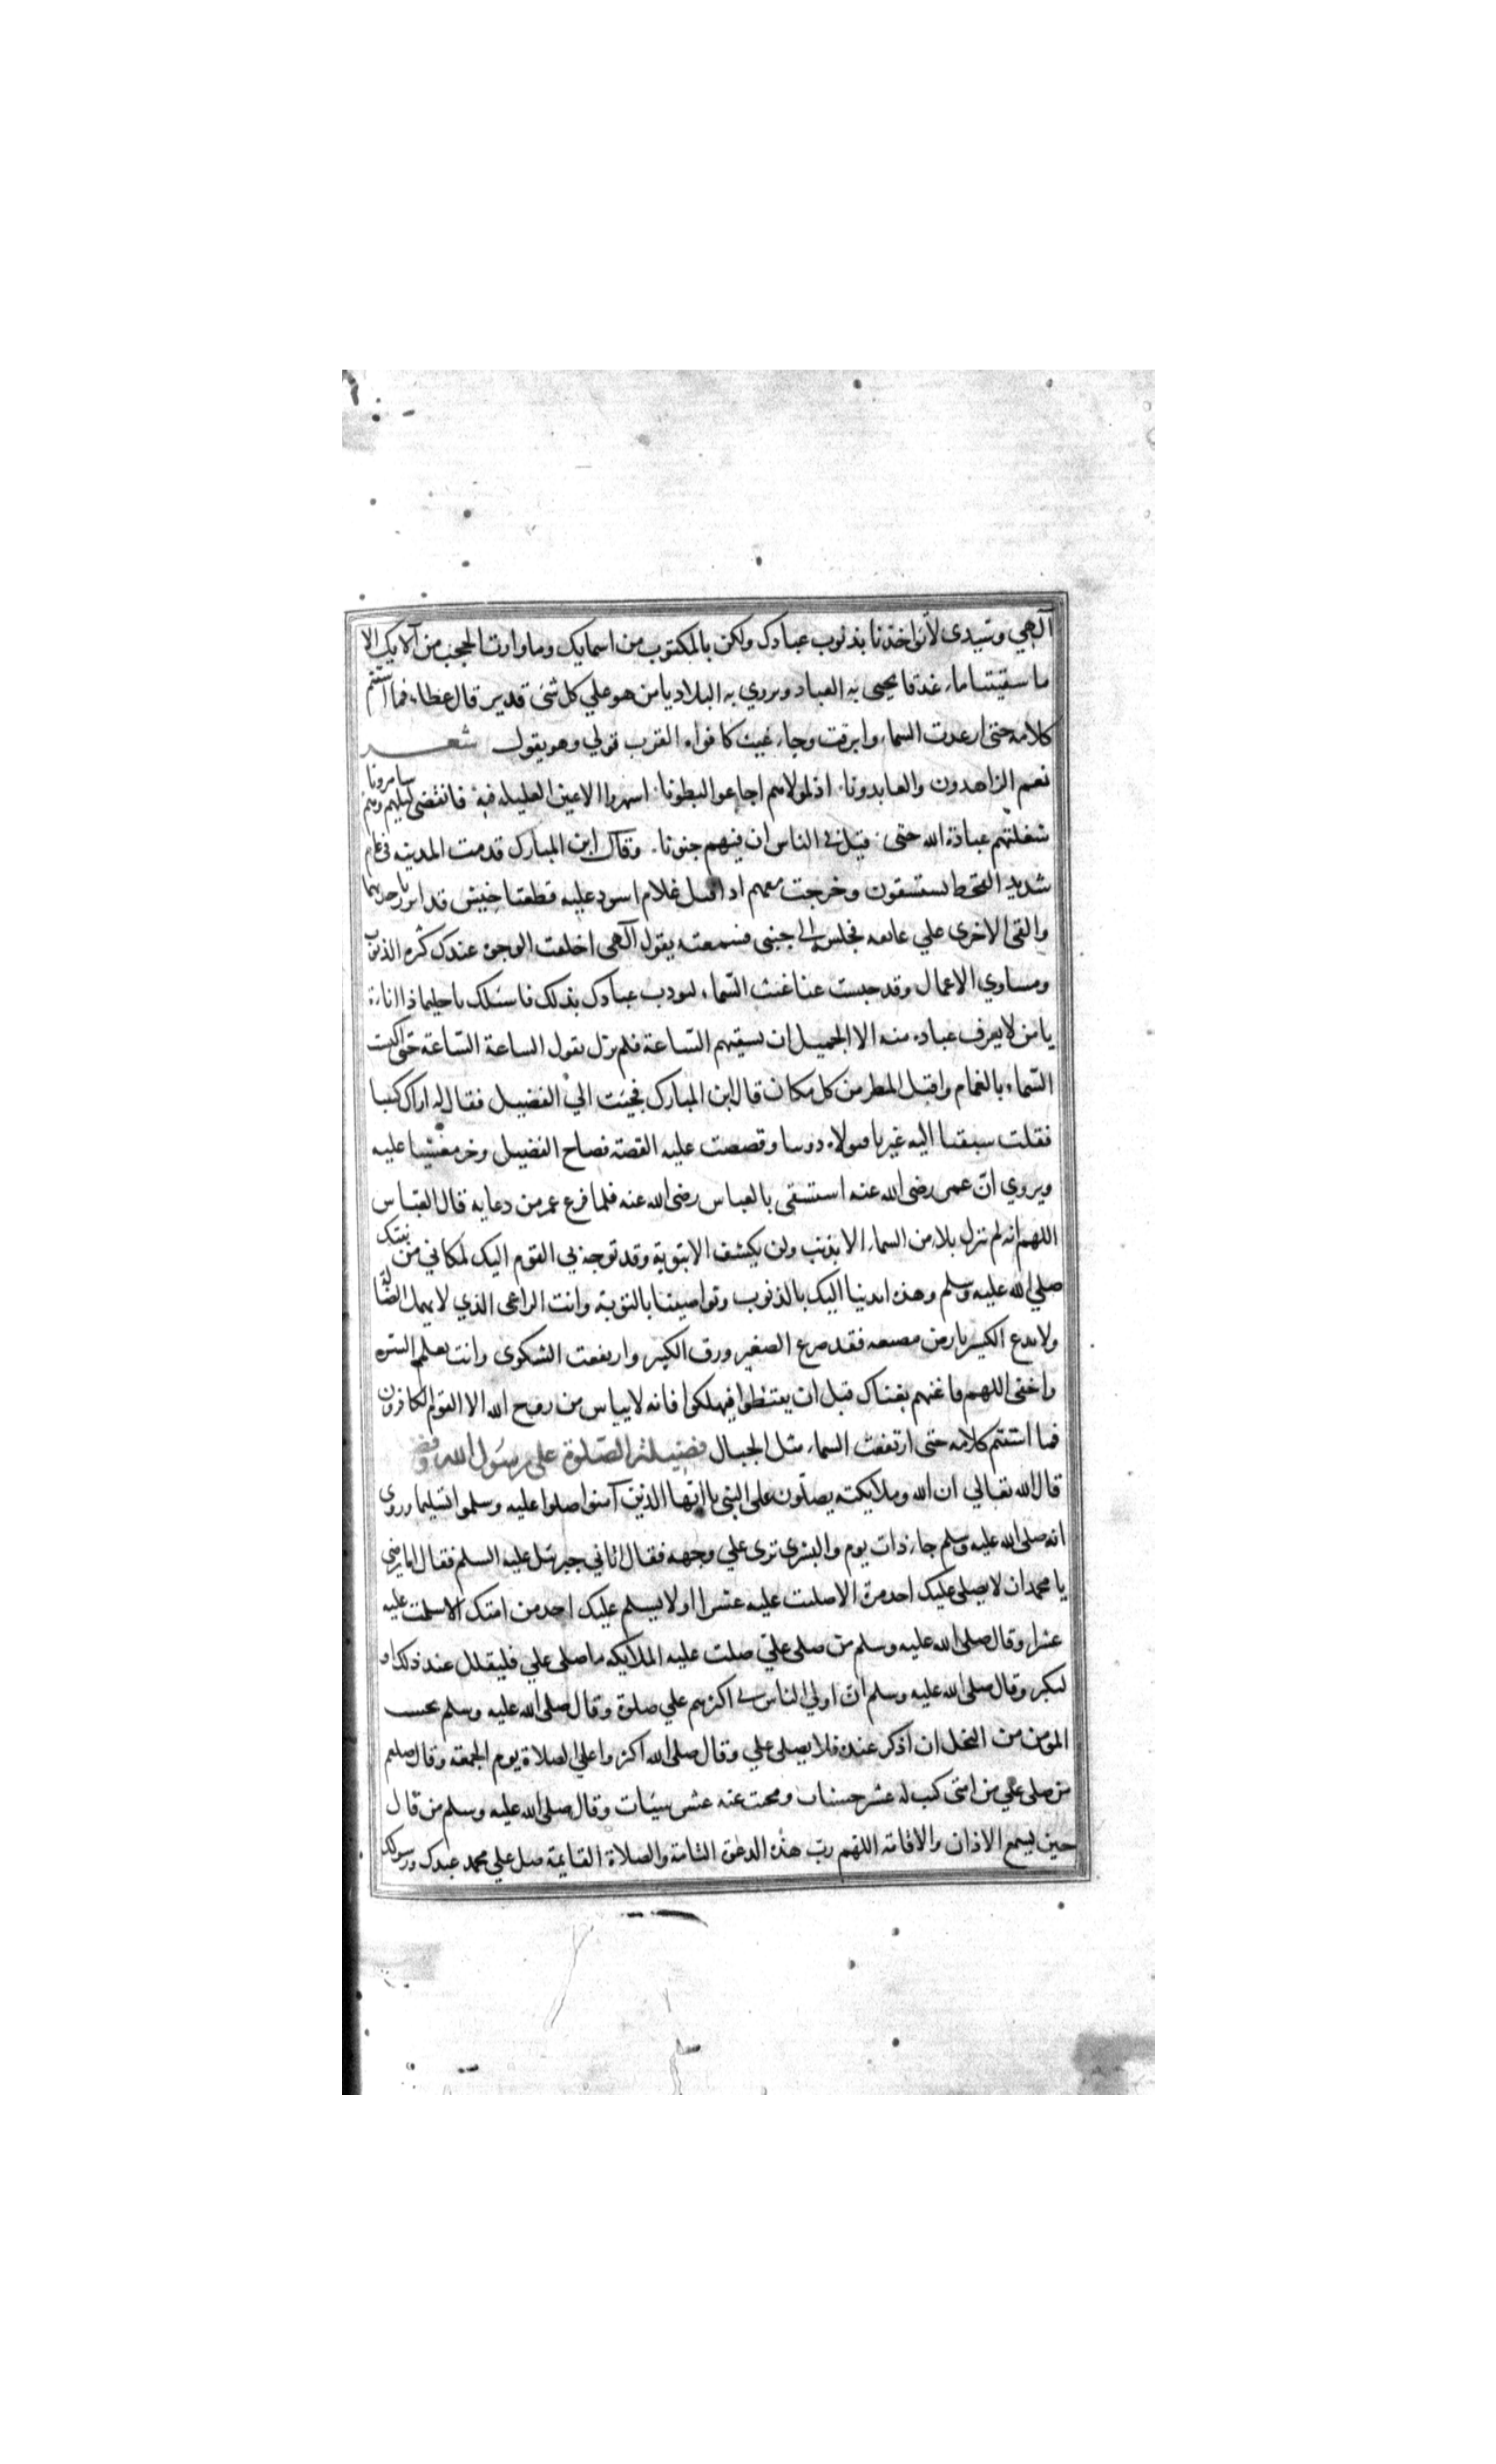 آلهي وسيدي لا تواخذنا بذنوب عبادك ولكن بالمكتوب من اسمايك وما وارت الحجب من آلايك الا
ما سقيتنا ماء غدقا يحيى به العباد ويروي به البلاد يا من هو علي كل شئ قدير قال عطاء فما استتم
كلامه حتى ارعدت السماء وابرقت وجاء غيث كافواه القرب فولي وهو يقول شعر
نعم الزاهدون والعابدونا اذ لمولاهم اجاعوا البطونا اسهروا الاعين العليله فيه فانقضى ليلهم وهم ساهرونا
شغلتهم عبادة الله حتى قيل في الناس ان فيهم جنونا وقال ابن المبارك قدمت المدينه في عام
شديد القحط يستسقون وخرجت معهم اذ اقبل غلام اسود عليه قطعتا خيش قد اتزر باحديهما
والقى الاخرى علي عاتقه فجلس الى جنبي فسمعته يقول آلهى اخلقت الوجوه عندك كثره الذنوب
ومساوي الاعمال وقد حبست عنا غيث السماء لتودب عبادك بذلك فاسئلك يا حليما ذا اناءة
يا من لا يعرف عباده منه الا الجميل ان تسقيهم الساعة فلم يزل يقول الساعة الساعة حتى اكتست
السماء بالغمام واقبل المطر من كل مكان قال ابن المبارك فجيئت الي الفضيل فقال لي اراك كئيبا
فقلت سبقنا اليه غيرنا فتولاه دوننا وقصصت عليه القصة فصاح الفضيل وخر مغشيا عليه
ويروي ان عمر رضى الله عنه استسقى بالعباس رضى الله عنه فلما فرغ عمر من دعايه قال العباس
اللهم انه لم تنزل بلاء من السماء الا بذنب ولن يكشف الا بتوبة وقد توجه بي القوم اليك لمكاني من نبيك
صلي الله عليه وسلم وهذه ايدينا اليك بالذنوب ونواصينا بالتوبة وانت الراعى الذي لا يهمل الضالة
ولا يدع الكسير بارض مضيعه فقد ضرع الصغير ورق الكبير وارتفعت الشكوى وانت تعلم السر
واخفى اللهم فاغثهم بغياثك قبل ان يقنطوا فيهلكوا فانه لا يياس من روح الله الا القوم الكافرون
فما استتم كلامه حتى ارتفعت السماء مثل الجبال فضيلة الصلوة على رسول الله وفضله
قال الله تعالي ان الله وملايكته يصلون على النبى يا ايها الذين آمنوا صلوا عليه وسلموا تسليما وروى
انه صلى الله عليه وسلم جاء ذات يوم والبشرى ترى علي وجهه فقال اتاني جبرئيل عليه السلم فقال اما ترضى
يا محمد ان لا يصلى عليك احد مرة الا صليت عليه عشرا او لا يسلم عليك احد من امتك الا سلمت عليه
عشرا وقال صلى الله عليه وسلم من صلى علي صلت عليه الملايكه ما صلى علي فليقلل عند ذلك او
ليكثر وقال صلى الله عليه وسلم ان اولي الناس بي اكثرهم علي صلوة وقال صلى الله عليه وسلم بحسب
المؤمن من البخل ان اذكر عنده فلا يصلى علي وقال صلى الله اكثروا علي الصلاة يوم الجمعة وقال صلعم
من صلى علي من امتى كتب له عشر حسنات ومحت عنه عشر سيئات وقال صلى الله عليه وسلم من قال
حين يسمع الاذان والاقامة اللهم رب هذه الدعوة التامة والصلاة القايمة صل علي محمد عبدك ورسولك